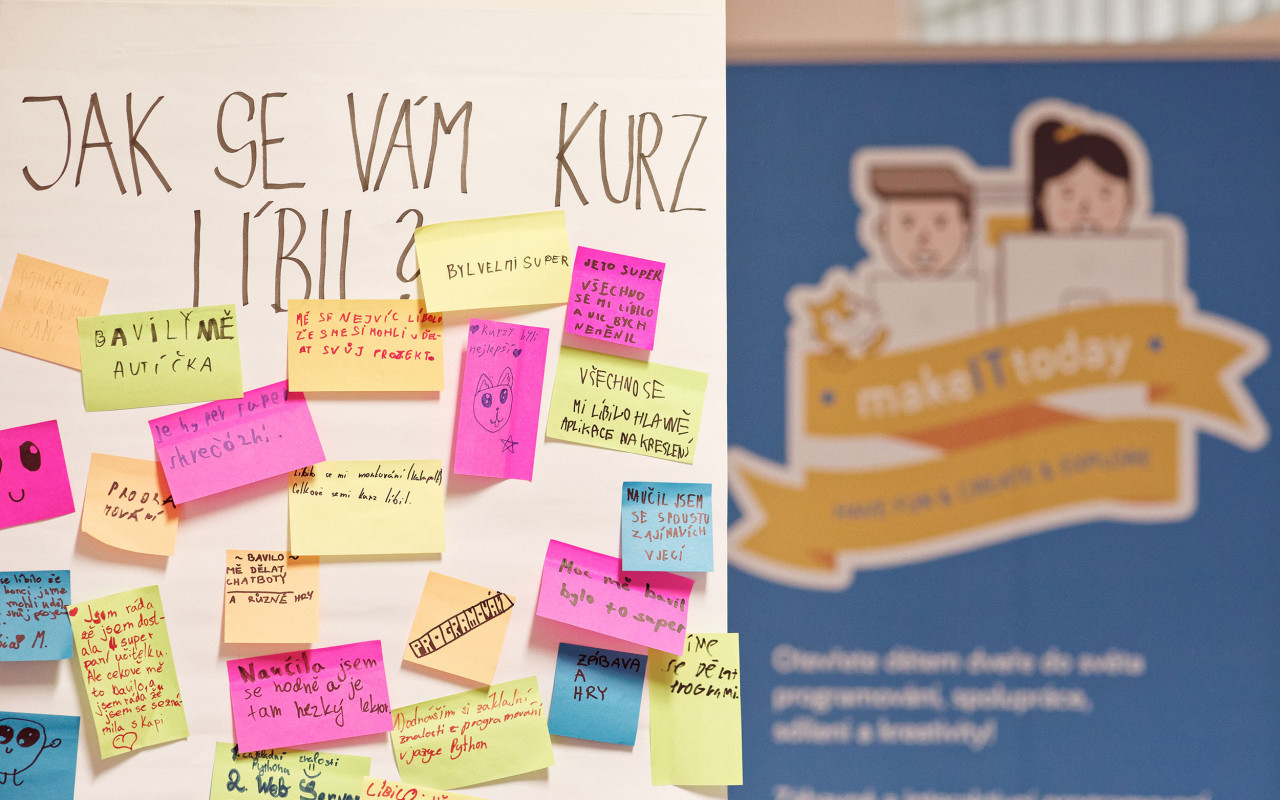 JAK SE VÁM KURZ
LÍBIL?
BYL VELMI SUPER
JE TO SUPER
VŠECHNO
SE MI LÍBILO
A NIC BYCH
NEMĚNIL
BAVILY MĚ
AUTÍČKA
MĚ SE NEJVÍC LÍBILO
ŽE SME SI MOHLI UDĚL-
AT SVŮJ PROJEKT.
kurzy byli
nejlepší
VŠECHNO SE
MI LÍBILO HLAVNĚ
APLIKACE NA KRESLENÍ
je hyper super
skrečózní.
PROGRA
MOVÁNÍ
líbilo se mi montování (katapult)
Celkově semi kurz líbil.
NAUČIL JSEM
SE SPOUSTU
ZAJÍMAVÍCH
VJECÍ
~ BAVILO ~
MĚ DĚLAT
CHATBOTY
A RŮZNÉ HRY
PROGRAMOVÁNÍ
Moc mě bavil
bylo to super
se líbilo že
konci jsme
mohli
svůj
M.
Jsem ráda
že jsem dost-
ala super
paní učitelku.
Ale celkově mě
to bavilo, a
jsem ráda že
jsem se sezná-
mila s Kapi
Naučila jsem
se hodně a je
tam hezký lektor
ZÁBAVA
A
HRY
se DĚlat
PROGRAMi.
Odnáším si základní
znalosti z programování
v jazyce Python
základní znalosti
Pythonu
2. Web Server
LÍBILO
makeITtoday
HAVE FUN & CREATE & EXPLORE
Otevíráme dětem dveře do světa
programování, spolupráce,
sdílení a kreativity!